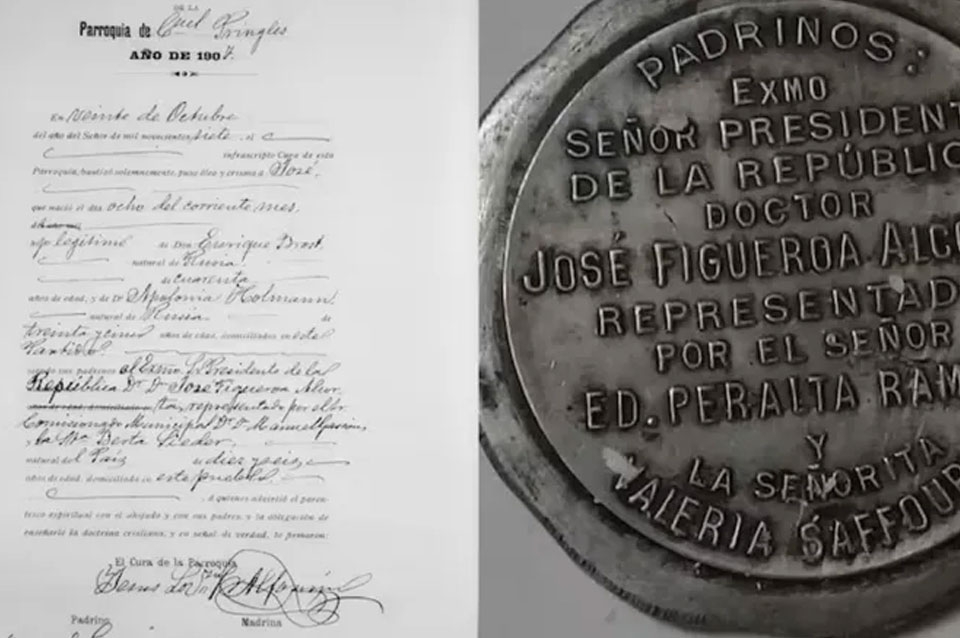 DE LA
Parroquia de Cnel Pringles
AÑO DE 1907.
En veinte de Octubre
del año del Señor de mil novecientos siete, el
infrascripto Cura de esta
Parroquia, bautizó solemnemente, puso óleo y crisma á José,
que nació el dia ocho del corriente mes.
hijo legítimo de Don Enrique Brost
natural de Rusia
de cuarenta
años de edad, y de Da Apolonia Holmann
natural de Rusia de
treinta y cinco años de edad, domiciliados en este
Partido
siendo sus padrinos al Exmo Sr Presidente de la
República Dr Dn José Figueroa Alcor
ta, representado por el Sr
Comisionado Municipal Dr Dn Manuel
y la Sta Berta Lieder,
natural del Paiz de diez y seis
años de edad, domiciliada en este pueblo
á quienes advirtió el paren-
tesco espiritual con el ahijado y con sus padres, y la obligacion de
enseñarle la doctrina cristiana, y en señal de verdad, lo firmaron:
El Cura de la Parroquia
Padrino Madrina
PADRINOS:
EXMO
SEÑOR PRESIDENT
DE LA REPÚBLIC
DOCTOR
JOSÉ FIGUEROA ALCO
REPRESENTAD
POR EL SEÑOR
ED. PERALTA RAM
Y
LA SEÑORITA
VALERIA SAFFOUR